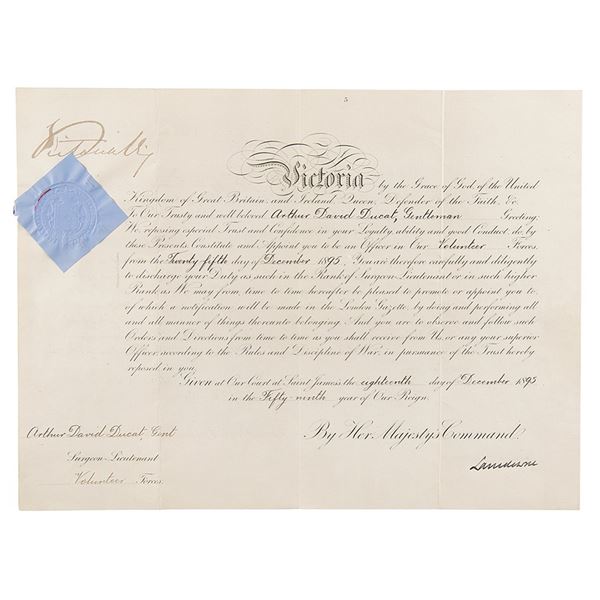 5
Victoria by the Grace of God, of the United
Kingdom of Great Britain and Ireland, Queen, Defender of the Faith, &c.
To Our Trusty and well beloved Arthur David Ducat, Gentleman Greeting:
We, reposing especial Trust and Confidence in your Loyalty, ability and good Conduct, do, by
these Presents, Constitute and Appoint you to be an Officer in Our Volunteer Forces,
from the Twenty fifth day of December 1895. You are therefore carefully and diligently
to discharge your Duty as such in the Rank of Surgeon Lieutenant or in such higher
Rank as We may, from time to time hereafter be pleased to promote or appoint you to,
of which a notification will be made in the London Gazette, by doing and performing all
and all manner of things thereunto belonging: And you are to observe and follow such
Orders and Directions, from time to time as you shall receive from Us, or any your superior
Officer, according to the Rules and Discipline of War, in pursuance of the Trust hereby
reposed in you.
Given at Our Court at Saint James's the eighteenth day of December 1895
in the Fifty-ninth year of Our Reign.
By Her Majesty's Command.
Lansdowne
Arthur David Ducat, Gent
Surgeon-Lieutenant
Volunteer Forces.